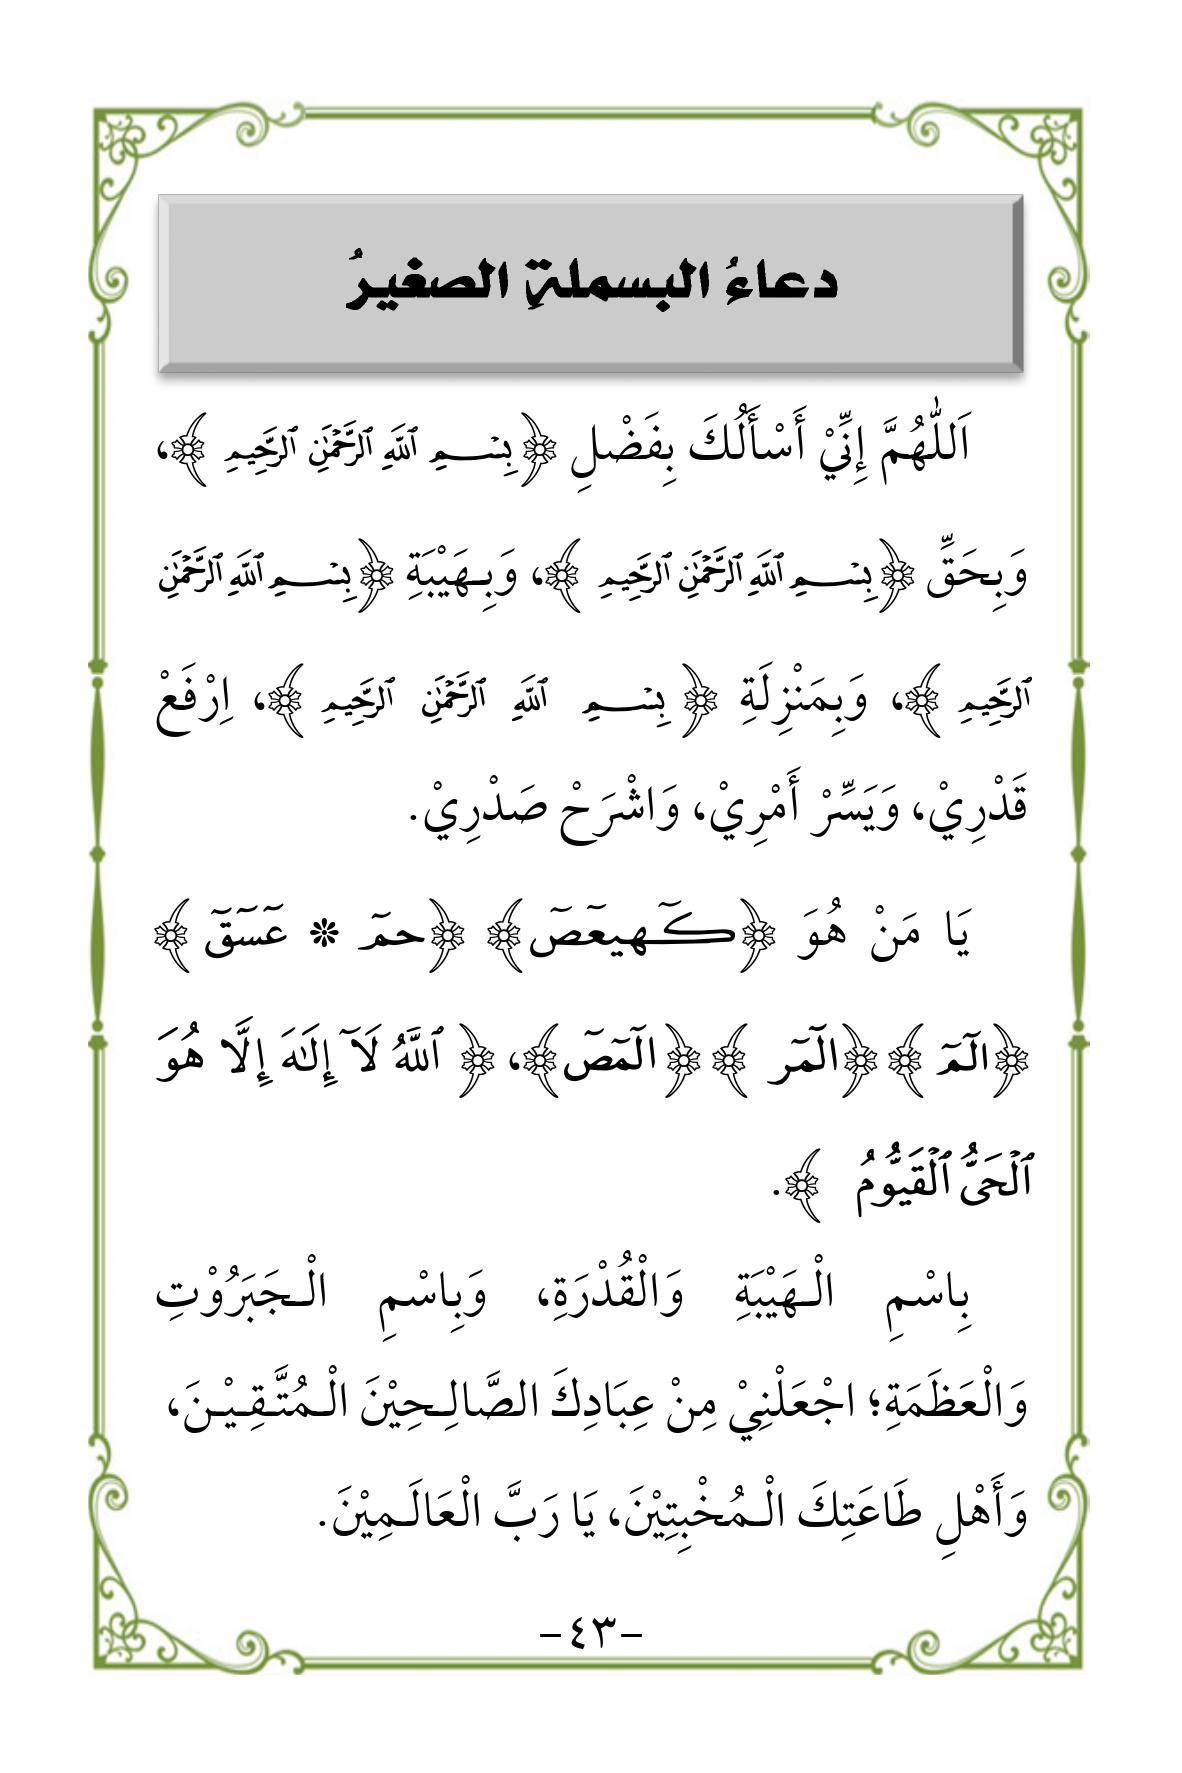 دعاءُ البسملةِ الصغيرُ
اَللّٰهُمَّ إِنِّيْ أَسْأَلُكَ بِفَضْلِ ﴿بِسْمِ ٱللَّهِ ٱلرَّحْمَٰنِ ٱلرَّحِيمِ﴾،
وَبِحَقِّ ﴿بِسْمِ ٱللَّهِ ٱلرَّحْمَٰنِ ٱلرَّحِيمِ﴾، وَبِهَيْبَةِ ﴿بِسْمِ ٱللَّهِ ٱلرَّحْمَٰنِ
ٱلرَّحِيمِ﴾، وَبِمَنْزِلَةِ ﴿بِسْمِ ٱللَّهِ ٱلرَّحْمَٰنِ ٱلرَّحِيمِ﴾، اِرْفَعْ
قَدْرِيْ، وَيَسِّرْ أَمْرِيْ، وَاشْرَحْ صَدْرِيْ.
يَا مَنْ هُوَ ﴿كٓهيعٓصٓ﴾ ﴿حمٓ * عٓسٓقٓ﴾
﴿الٓمٓ﴾ ﴿الٓمٓر﴾ ﴿الٓمٓصٓ﴾، ﴿ٱللَّهُ لَآ إِلَٰهَ إِلَّا هُوَ
ٱلْحَىُّ ٱلْقَيُّومُ﴾.
بِاسْمِ الْهَيْبَةِ وَالْقُدْرَةِ، وَبِاسْمِ الْجَبَرُوْتِ
وَالْعَظَمَةِ؛ اجْعَلْنِيْ مِنْ عِبَادِكَ الصَّالِحِيْنَ الْمُتَّقِيْنَ،
وَأَهْلِ طَاعَتِكَ الْمُخْبِتِيْنَ، يَا رَبَّ الْعَالَمِيْنَ.
-٤٣-